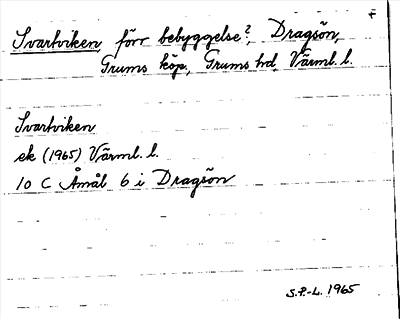 Svartviken, förr bebyggelse?, Dragsön,
Grums köp., Grums hd, Värml. l.
Svartviken
ek (1965) Värml. l.
10 C Åmål 6 i Dragsön
S.P.-L. 1965